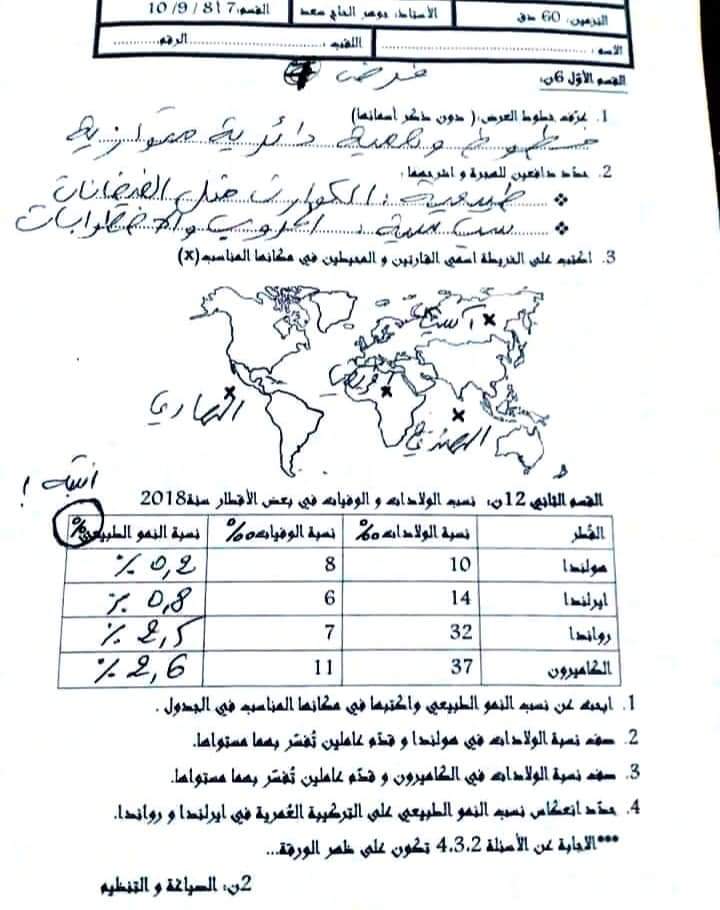 التوقيت: 60 دق الأستاذ: جوهر الحاج سعد القسم: 7 / 8 / 9 / 10
الاسم: اللقب: الرقم:
فرض
القسم الأول 6ن:
1. عرّف خطوط العرض: (دون ذكر أسمائها)
خطوط وهمية دائرية متوازية
2. حدّد دافعين للهجرة و اشرحهما:
❖ طبيعية: الكوارث مثل الفيضانات
❖ سياسية: الحروب والاضطرابات
3. اكتب على الخريطة اسمي القارتين و المحيطين في مكانها المناسب (x)
آسيا x
افريقيا x
الهادي x
الهندي x
انتبه !
القسم الثاني 12ن: نسب الولادات و الوفيات في بعض الأقطار سنة 2018
القُطر نسبة الولادات ‰ نسبة الوفيات ‰ نسبة النمو الطبيعي %
هولندا 10 8 0,2 %
ايرلندا 14 6 0,8 %
رواندا 32 7 2,5 %
الكاميرون 37 11 2,6 %
1. ابحث عن نسب النمو الطبيعي واكتبها في مكانها المناسب في الجدول.
2. صف نسبة الولادات في هولندا و قدّم عاملين تُفسّر بهما مستواها.
3. صف نسبة الولادات في الكاميرون و قدّم عاملين تُفسّر بهما مستواها.
4. حدّد انعكاس نسب النمو الطبيعي على التركيبة العُمرية في ايرلندا و رواندا.
***الاجابة عن الأسئلة 4.3.2 تكون على ظهر الورقة...
2ن: الصياغة و التنظيم